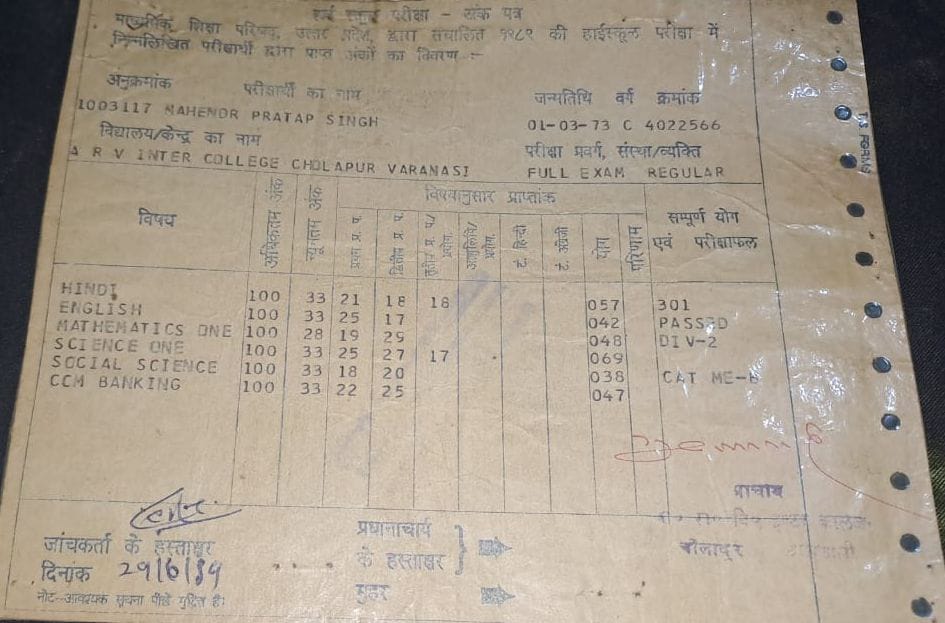 हाई स्कूल परीक्षा - अंक पत्र
माध्यमिक शिक्षा परिषद, उत्तर प्रदेश, द्वारा संचालित १९८९ की हाईस्कूल परीक्षा में
निम्नलिखित परीक्षार्थी द्वारा प्राप्त अंकों का विवरण :-
अनुक्रमांक परीक्षार्थी का नाम जन्मतिथि वर्ग क्रमांक
1003117 MAHENDR PRATAP SINGH 01-03-73 C 4022566
विद्यालय/केन्द्र का नाम परीक्षा प्रवर्ग, संस्था/व्यक्ति
A R V INTER COLLEGE CHOLAPUR VARANASI FULL EXAM REGULAR
विषय अधिकतम अंक न्यूनतम अंक विषयानुसार प्राप्तांक सम्पूर्ण योग
एवं परीक्षाफल
प्रथम प्र. प. द्वितीय प्र. प. तृतीय प्र. प./ प्रयोग. आशुलिपि/ प्रयोग. ट. हिन्दी ट. अंग्रेजी योग परिणाम
HINDI 100 33 21 18 18 057 301
ENGLISH 100 33 25 17 042 PASSED
MATHEMATICS ONE 100 28 19 29 048 DIV-2
SCIENCE ONE 100 33 25 27 17 069
SOCIAL SCIENCE 100 33 18 20 038 CAT ME-B
COM BANKING 100 33 22 25 047
प्रधानाचार्य
के हस्ताक्षर
मुहर
जांचकर्ता के हस्ताक्षर
दिनांक 29/6/89
नोट-आवश्यक सूचना पीछे मुद्रित है।
T.S. FORMS